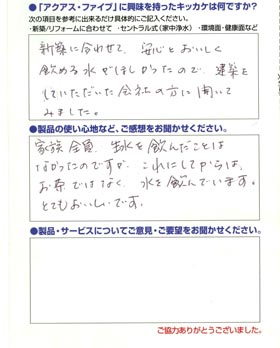 ●「アクアス・ファイブ」に興味を持ったキッカケは何ですか?
次の項目を参考に出来るだけ具体的にご記入ください。
・新築/リフォームに合わせて ・セントラル式(家中浄水) ・環境面・健康面など
新築に合わせて、安心とおいしく
飲める水がほしかったので、建築
をしていただいた会社の方に聞いて
みました。
●製品の使い心地など、ご感想をお聞かせください。
家族全員、生水を飲んだことは
なかったのですが、これにしてからは、
お茶ではなく、水を飲んでいます。
とてもおいしいです。
●製品・サービスについてご意見・ご要望をお聞かせください。
ご協力ありがとうございました。